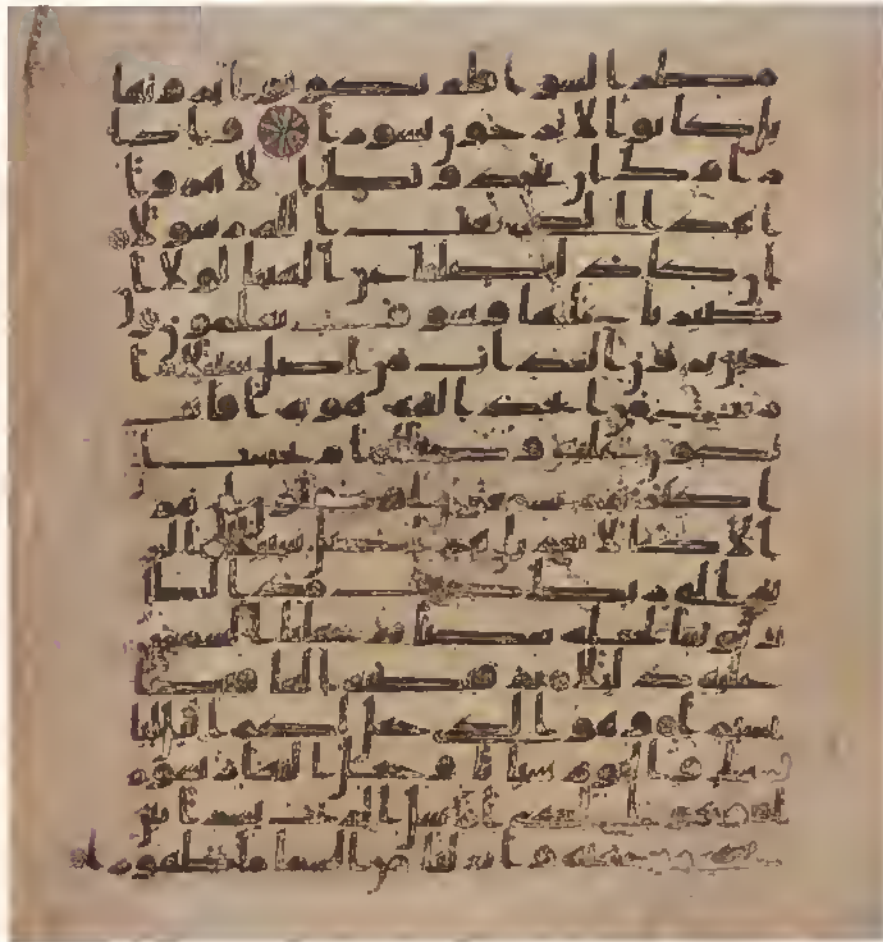 مطر السو افلم يكونوا يرونها
بل كانوا لا يرجون نشورا واذا
راوك ان يتخذونك الا هزوا
اهذا الذي بعث الله رسولا
ان كاد ليضلنا عن الهتنا لولا ا
ن صبرنا عليها وسوف يعلمون
حين يرون العذاب من اضل سبيلا ا
رايت من اتخذ الهه هويه افانت
تكون عليه وكيلا ام تحسب ا
ن اكثرهم يسمعون او يعقلون ان هم
الا كالانعم بل هم اضل سبيلا الم
تر الى ربك كيف مد الظل و
لو شا لجعله ساكنا ثم جعلنا الشمس
عليه دليلا ثم قبضنه الينا قبضا
يسيرا وهو الذي جعل لكم اليل لبا
سا والنوم سباتا وجعل النهار نشو
را وهو الذي ارسل الريح بشرا بين
يدي رحمته وانزلنا من السما ما طهورا